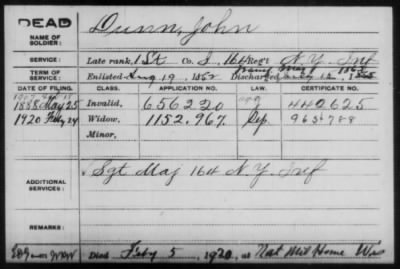 DEAD
NAME OF SOLDIER: Dunn, John
SERVICE: Late rank, 1 St Co. I, 164 Reg't N.Y. Inf
TERM OF SERVICE: Enlisted Aug 19, 1862 Discharged July 15, 1865
DATE OF FILING. CLASS. APPLICATION NO. LAW. CERTIFICATE NO.
1888 May 25 Invalid, 656220 442625
1920 Feby 24 Widow, 1152.967 963788
Minor,
ADDITIONAL SERVICES: Sgt Maj 164 N.Y. Inf
REMARKS:
Died Feby 5, 1920, at Nat Mil Home Wis